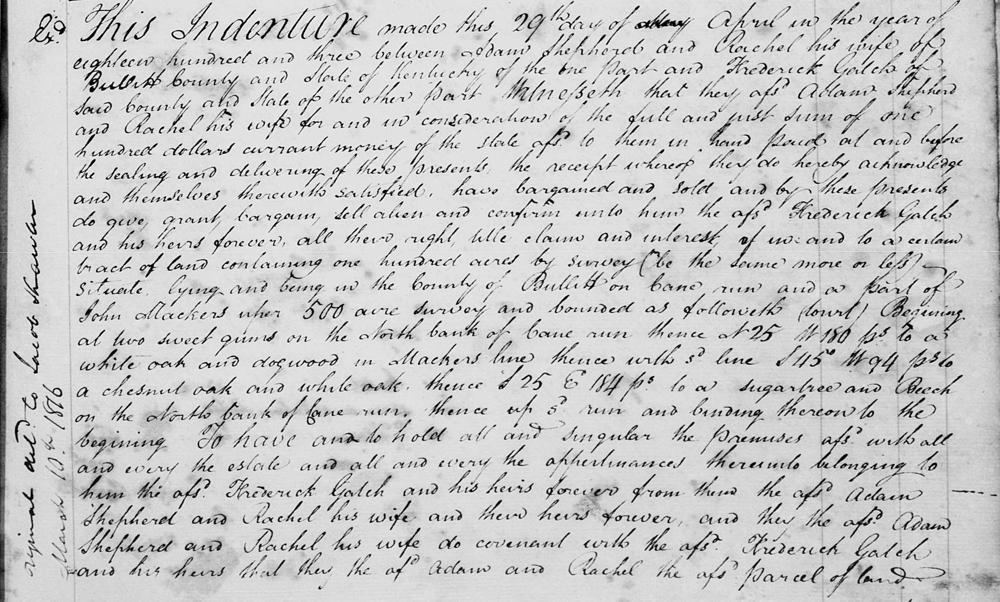 2d. This Indenture made this 29th day of May April in the year of
eighteen hundred and three between Adam Shepherd and Rachel his wife of
Bullitt County and State of Kentucky of the one part and Frederick Gatch of
said County and State of the other part Witnesseth that they afsd Addam Shepherd
and Rachel his wife for and in consideration of the full and just sum of one
hundred dollars currant money of the state afsd to them in hand paid at and before
the sealing and delivering of these presents, the receipt whereof they do hereby acknowledge
and themselves therewith satisfied, have bargained and sold and by these presents
do give, grant, bargain, sell alien and confirm unto him the afsd Frederick Gatch
and his heirs forever, all their right, title claim and interest, of in and to a certain
tract of land containing one hundred acres by survey (be the same more or less)
situate, lying and being in the County of Bullitt on Cane run and a part of
John Mackers 500 acre survey and bounded as followeth (towit) Begining
at two sweet gums on the North bank of Cane run thence N 25 W 180 ps to a
white oak and dogwood in Mackers line thence with sd line S 45 W 94 ps to
a chesnut oak and white oak, thence S 25 E 184 ps to a sugartree and Beech
on the North bank of Cane run, thence up sd run and binding thereon to the
begining To have and to hold all and singular the premises afsd with all
and every the estate and all and every the appertinances thereunto belonging to
him the afsd. Frederick Gatch and his heirs forever from them the afsd Adam
Shepherd and Rachel his wife and their heirs forever, and they the afsd Adam
Shepherd and Rachel his wife do covenant with the afsd. Frederick Gatch
and his heirs that they the afsd Adam and Rachel the afsd parcel of land
original deld to Jacob
March 10th 1816